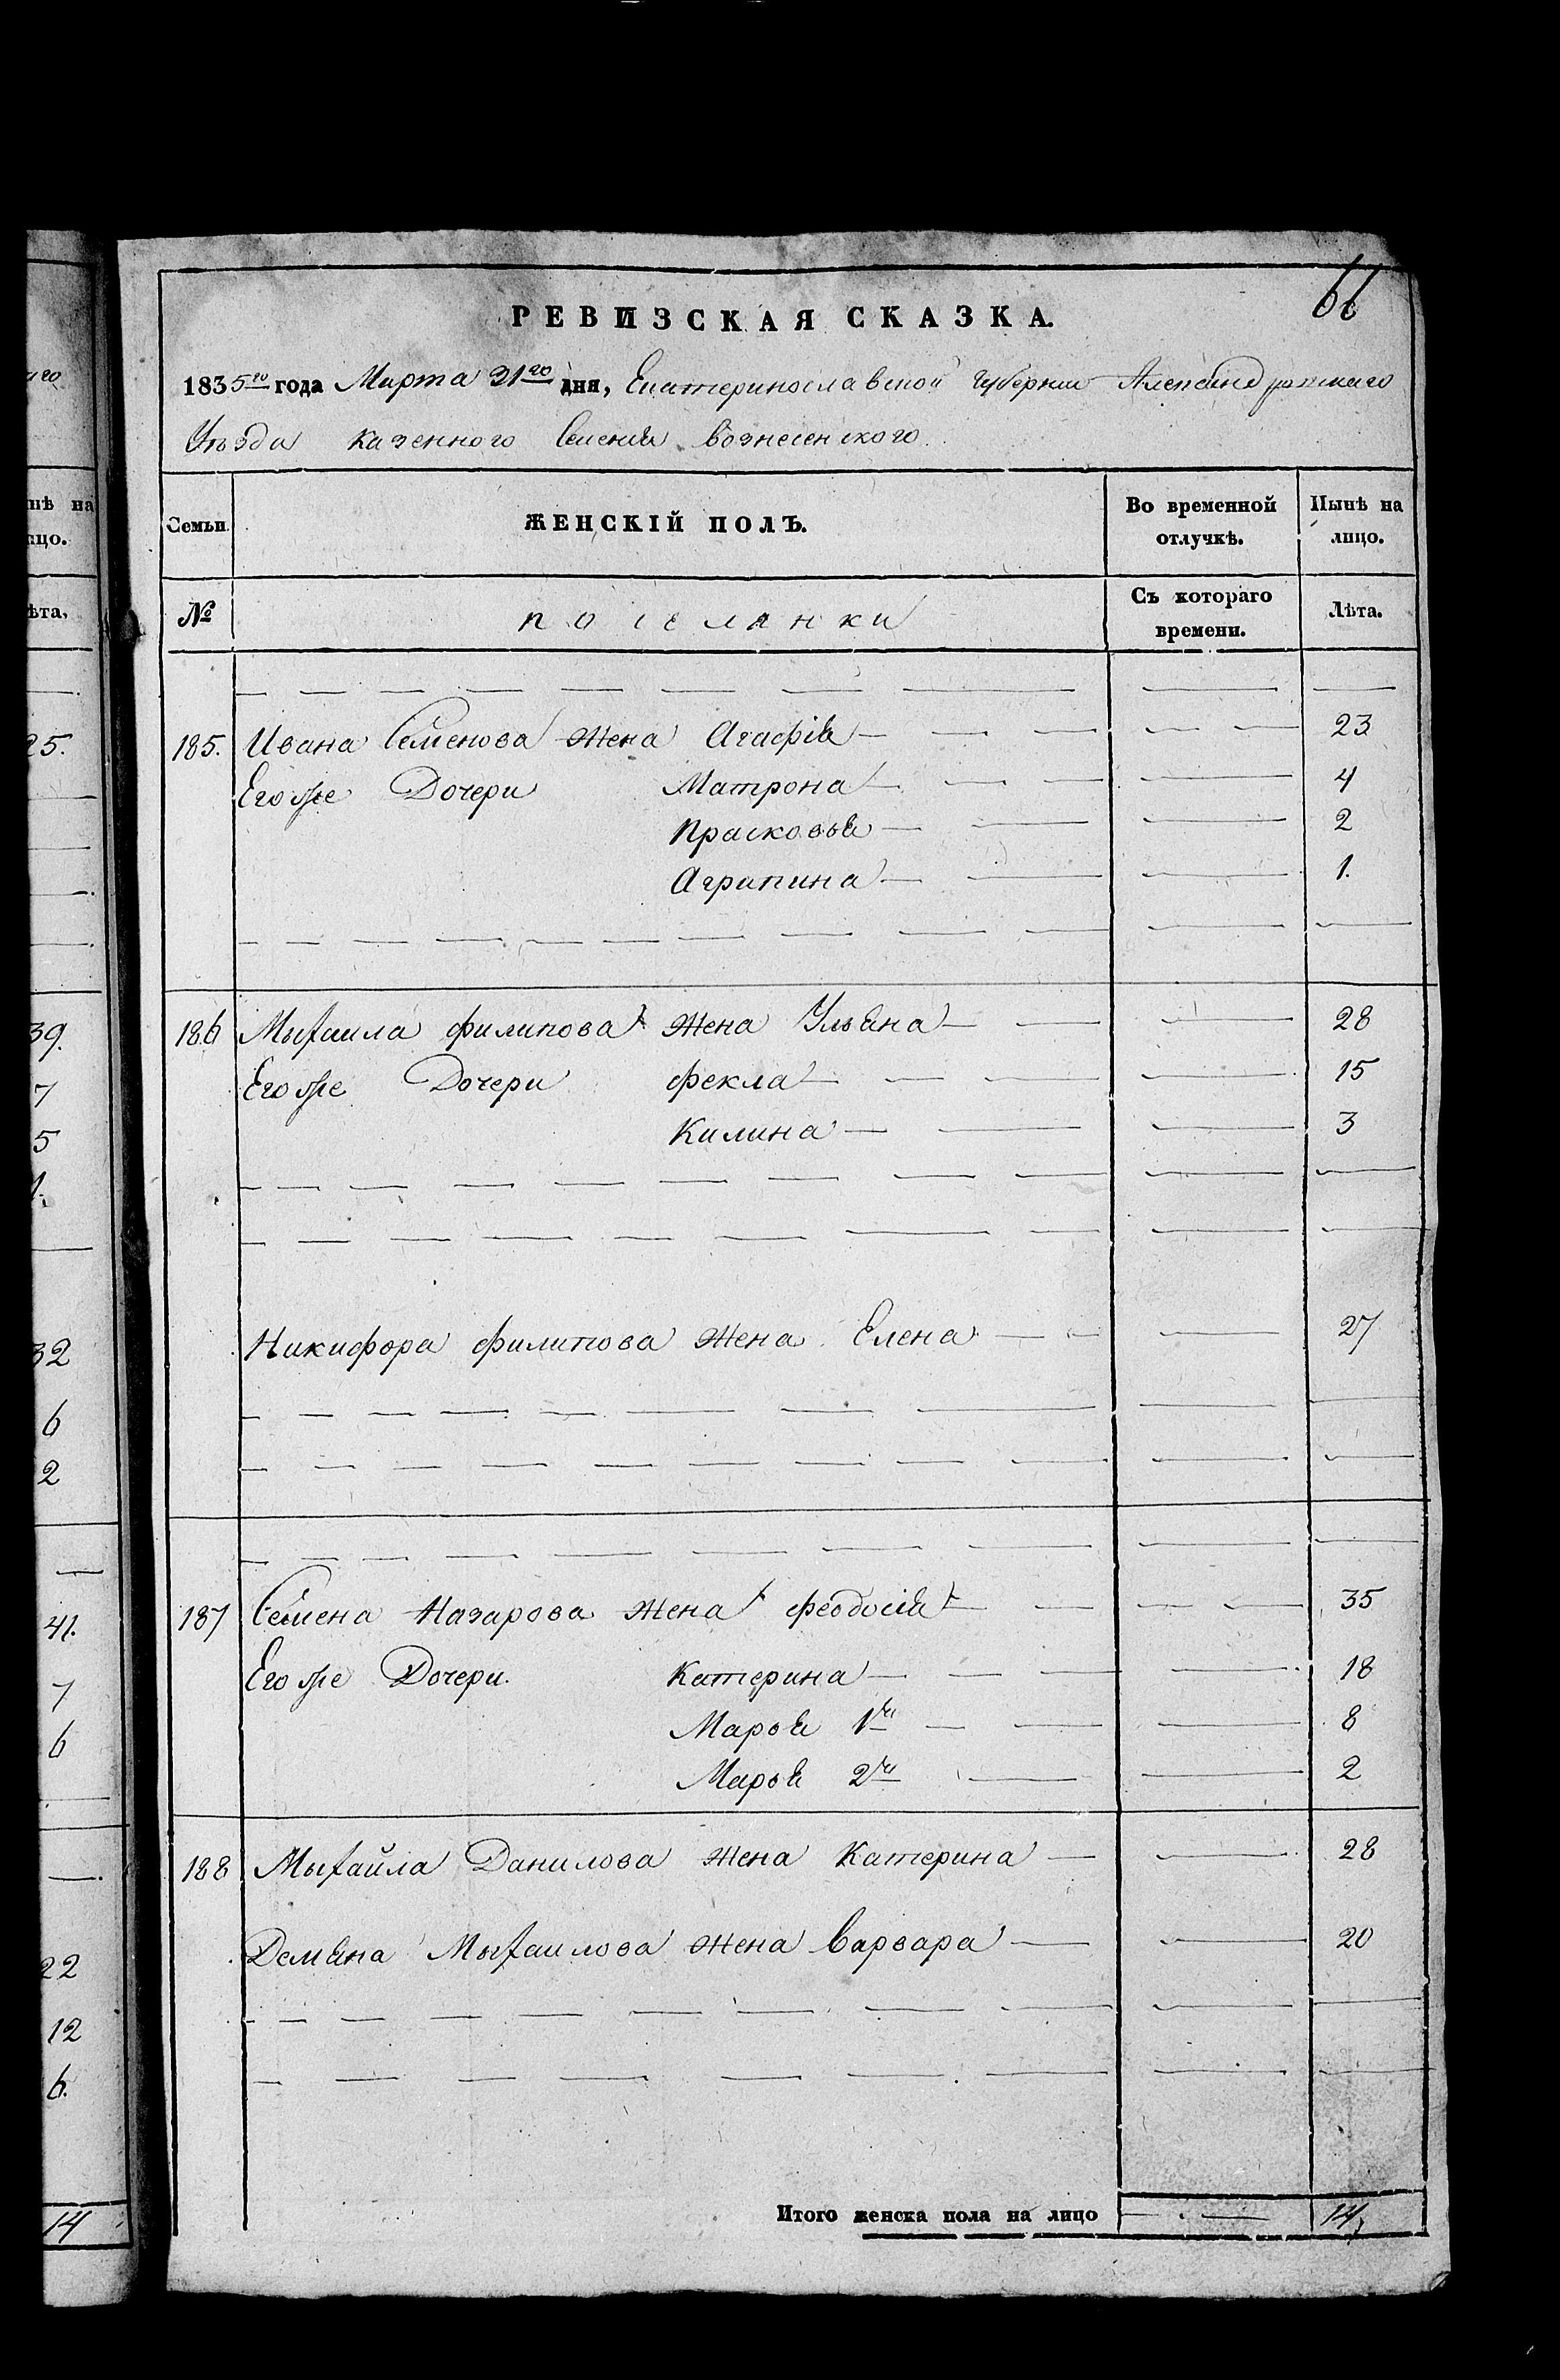 66
РЕВИЗСКАЯ СКАЗКА.
1835го года Марта 21го дня, Екатеринославской Губернии Александровскаго
Уѣзда казенного Селенія Вознесенского.
Семьи. ЖЕНСКІЙ ПОЛЪ. Во временной отлучкѣ. Нынѣ на лицо.
№ поселянки Съ котораго времени. Лѣта.
185. Ивана Семенова жена Агафія 23
Егоже Дочери Матрона 4
Прасковья 2
Аграпина 1.
186 Мыхаила Филипова жена Ульяна 28
Егоже Дочери Фекла 15
Килина 3
Никифора Филипова жена Елена 27
187 Семена Назарова жена Феодосія 35
Егоже Дочери. Катерина 18
Марья 1я 8
Марья 2я 2
188 Мыхайла Данилова жена Катерина 28
Демяна Мыхаилова жена Варвара 20
Итого женска пола на лицо 14
аго
нѣ на
ицо.
ѣта.
25.
39.
7
5
1.
32
6
2
41.
7
6
22
12
6.
14